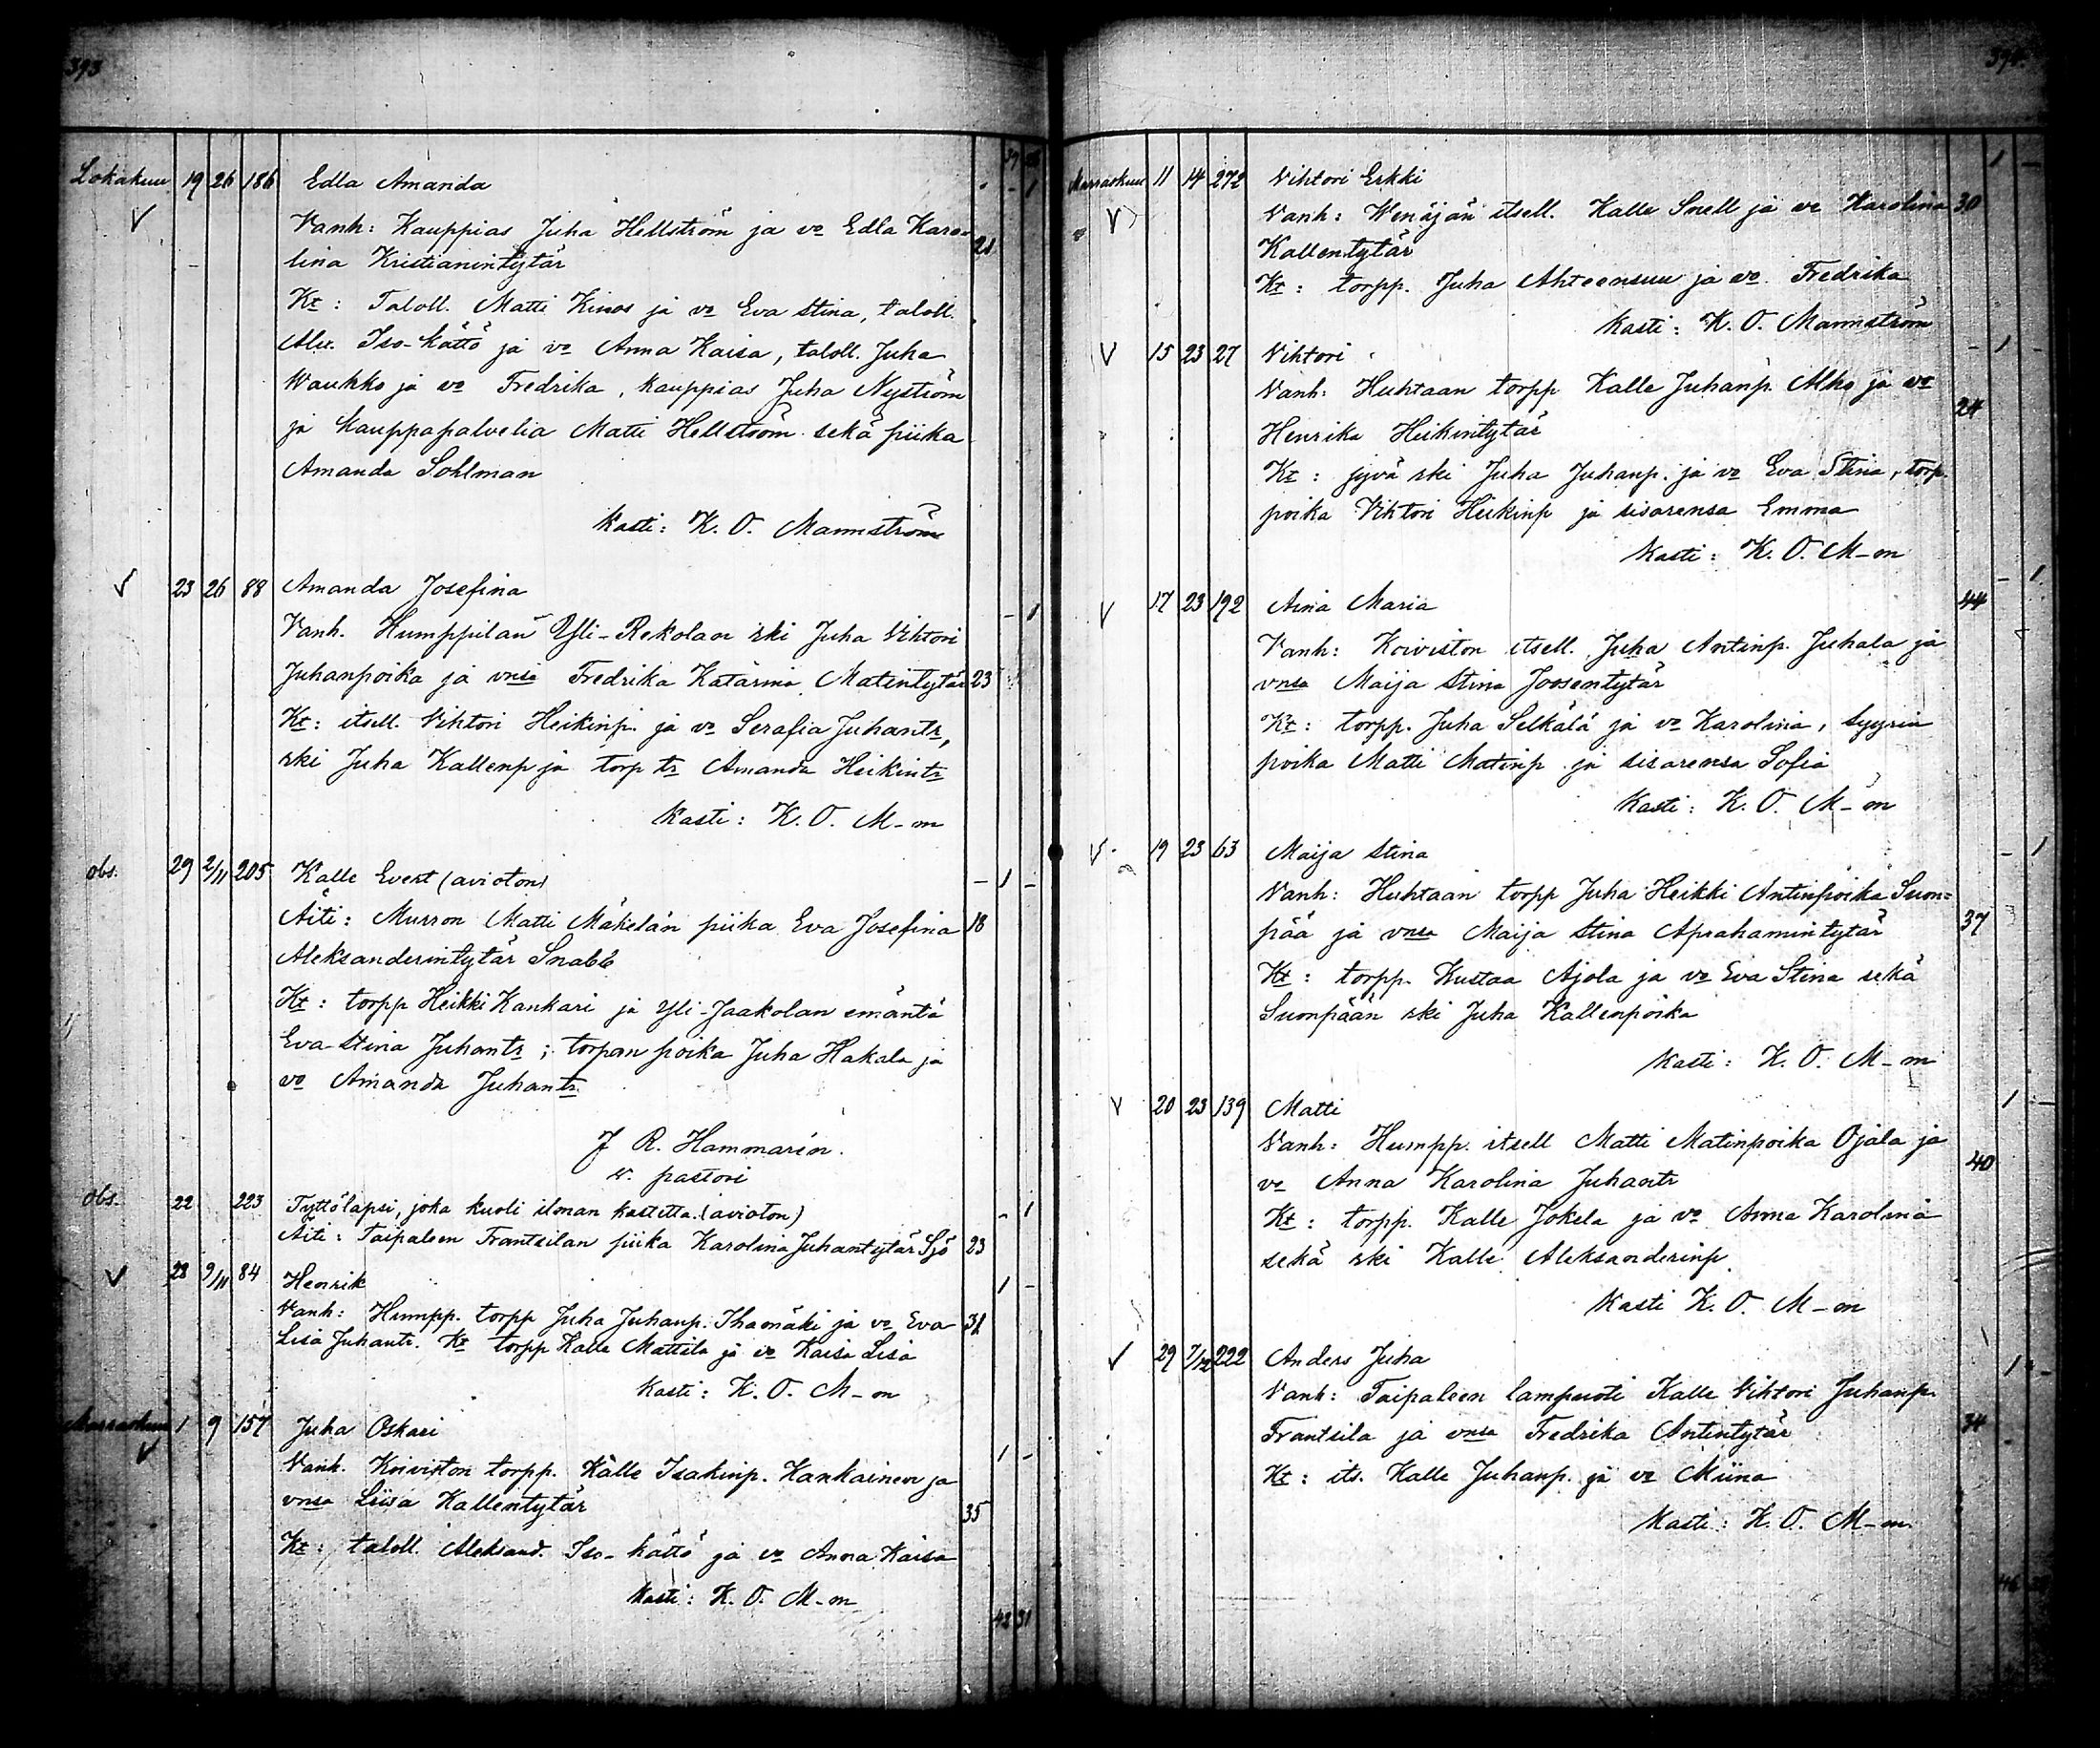 393
Lokakuu 19 26 186 Edla Amanda - 1
Vanh: Kauppias Juha Hellström ja vo Edla Karo-
lina Kristianintytär 21
Kt: Taloll. Matti Kinos ja vo Eva Stina, taloll.
Alex. Iso-Kättö ja vo Anna Kaisa, taloll. Juha
Waukko ja vo Fredrika, Kauppias Juha Nyström
ja Kauppapalvelia Matti Hellström sekä piika
Amanda Sohlman
Kasti: K. O. Mannström
V 23 26 88 Amanda Josefina - 1
Vanh. Humppilan Yli-Rekolan rki Juha Vihtori
Juhanpoika ja vnsa Fredrika Katarina Matintytär 23
Kt: itsell. Vihtori Heikinp. ja vo Serafia Juhantr,
rki Juha Kallenp ja torp tr Amanda Heikintr
Kasti: K. O. M-m
obs. 29 2/11 205 Kalle Evert (avioton) - 1 -
Äiti: Murron Matti Mäkelän piika Eva Josefina 18
Aleksanderintytär Snabb
Kt: torpp Heikki Kankari ja Yli-Jaakolan emäntä
Eva Stina Juhantr; torpan poika Juha Hakala ja
vo Amanda Juhantr.
J R. Hammarén.
v. pastori
obs. 22 223 Tyttölapsi, joka kuoli ilman kastetta. (avioton) - 1
Äiti: Taipaleen Frantsilan piika Karolina Juhantytär Sjö 23
V 28 9/11 84 Henrik 1 -
Vanh: Humpp. torpp Juha Juhanp. Ihamäki ja vo Eva 31
Lisa Juhantr. Kt torpp Kalle Mattila ja vo Kaisa Lisa
Kasti: K. O. M-m
Marraskuu 1 9 157 Juha Oskari
V Vanh. Koiviston torpp. Kalle Isakinp. Kankainen ja 1 -
vnsa Liisa Kallentytär 35
Kt: taloll. Aleksand. Iso-kättö ja vo Anna Kaisa
Kasti: K. O. M-m
43 31
394
Marraskuu 11 14 272 Vihtori Erkki 1 -
V Vanh: Wenäjän itsell. Kalle Snell ja vo Karolina 30
Kallentytär
Kt: torpp. Juha Ahteensuu ja vo. Fredrika
Kasti: K. O. Mannström
V 15 23 27 Vihtori - 1 -
Vanh: Huhtaan torpp Kalle Juhanp. Alho ja vo 24
Henrika Heikintytär
Kt: jyvä rki Juha Juhanp. ja vo Eva Stina, torp.
poika Vihtori Heikinp ja sisarensa Emma
Kasti: K. O. M-m
V 17 23 192 Aina Maria 44 - 1
Vanh: Koiviston itsell. Juha Antinp. Juhala ja
vnsa Maija Stina Joosentytär
Kt: torpp. Juha Selkälä ja vo Karolina, syyrin
poika Matti Matinp. ja sisarensa Sofia
Kasti: K. O. M-m
V 19 23 63 Maija Stina - 1
Vanh: Huhtaan torpp Juha Heikki Antinpoika Suon=
pää ja vnsa Maija Stina Aprahamintytär 37
Kt: torpp. Kustaa Ajola ja vo Eva Stina sekä
Suonpään rki Juha Kallenpoika
Kasti: K. O. M-m
V 20 23 139 Matti 1 -
Vanh: Humpp. itsell Matti Matinpoika Ojala ja
vo Anna Karolina Juhantr 40
Kt: torpp. Kalle Jokela ja vo Anna Karolina
sekä rki Kalle Aleksanderinp.
Kasti K. O. M-m
V 29 7/12 222 Anders Juha 1 -
Vanh: Taipaleen lampuoti Kalle Vihtori Juhanp.
Frantsila ja vnsa Fredrika Antintytär 34
Kt: its. Kalle Juhanp. ja vo Miina
Kasti: K. O. M-m.
46